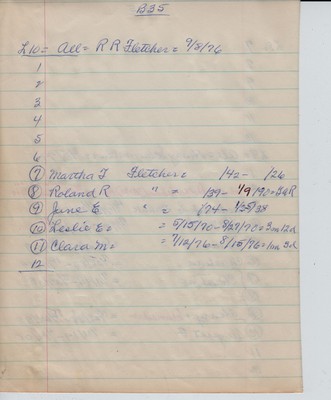 B35
L10 = All = R R Fletcher = 9/8/76
1
2
3
4
5
6
7 Martha J Fletcher = 1/42 - 1/26
8 Roland R " = 1/39 - 1/9/90 = G A R
9 Jane E. " = 1/74 -
10 Leslie E. = 5/15/70 - 8/27/70 = 3 mo 12 d
11 Clara M. = 7/12/76 - 8/15/76 = 1 m 3 d
12